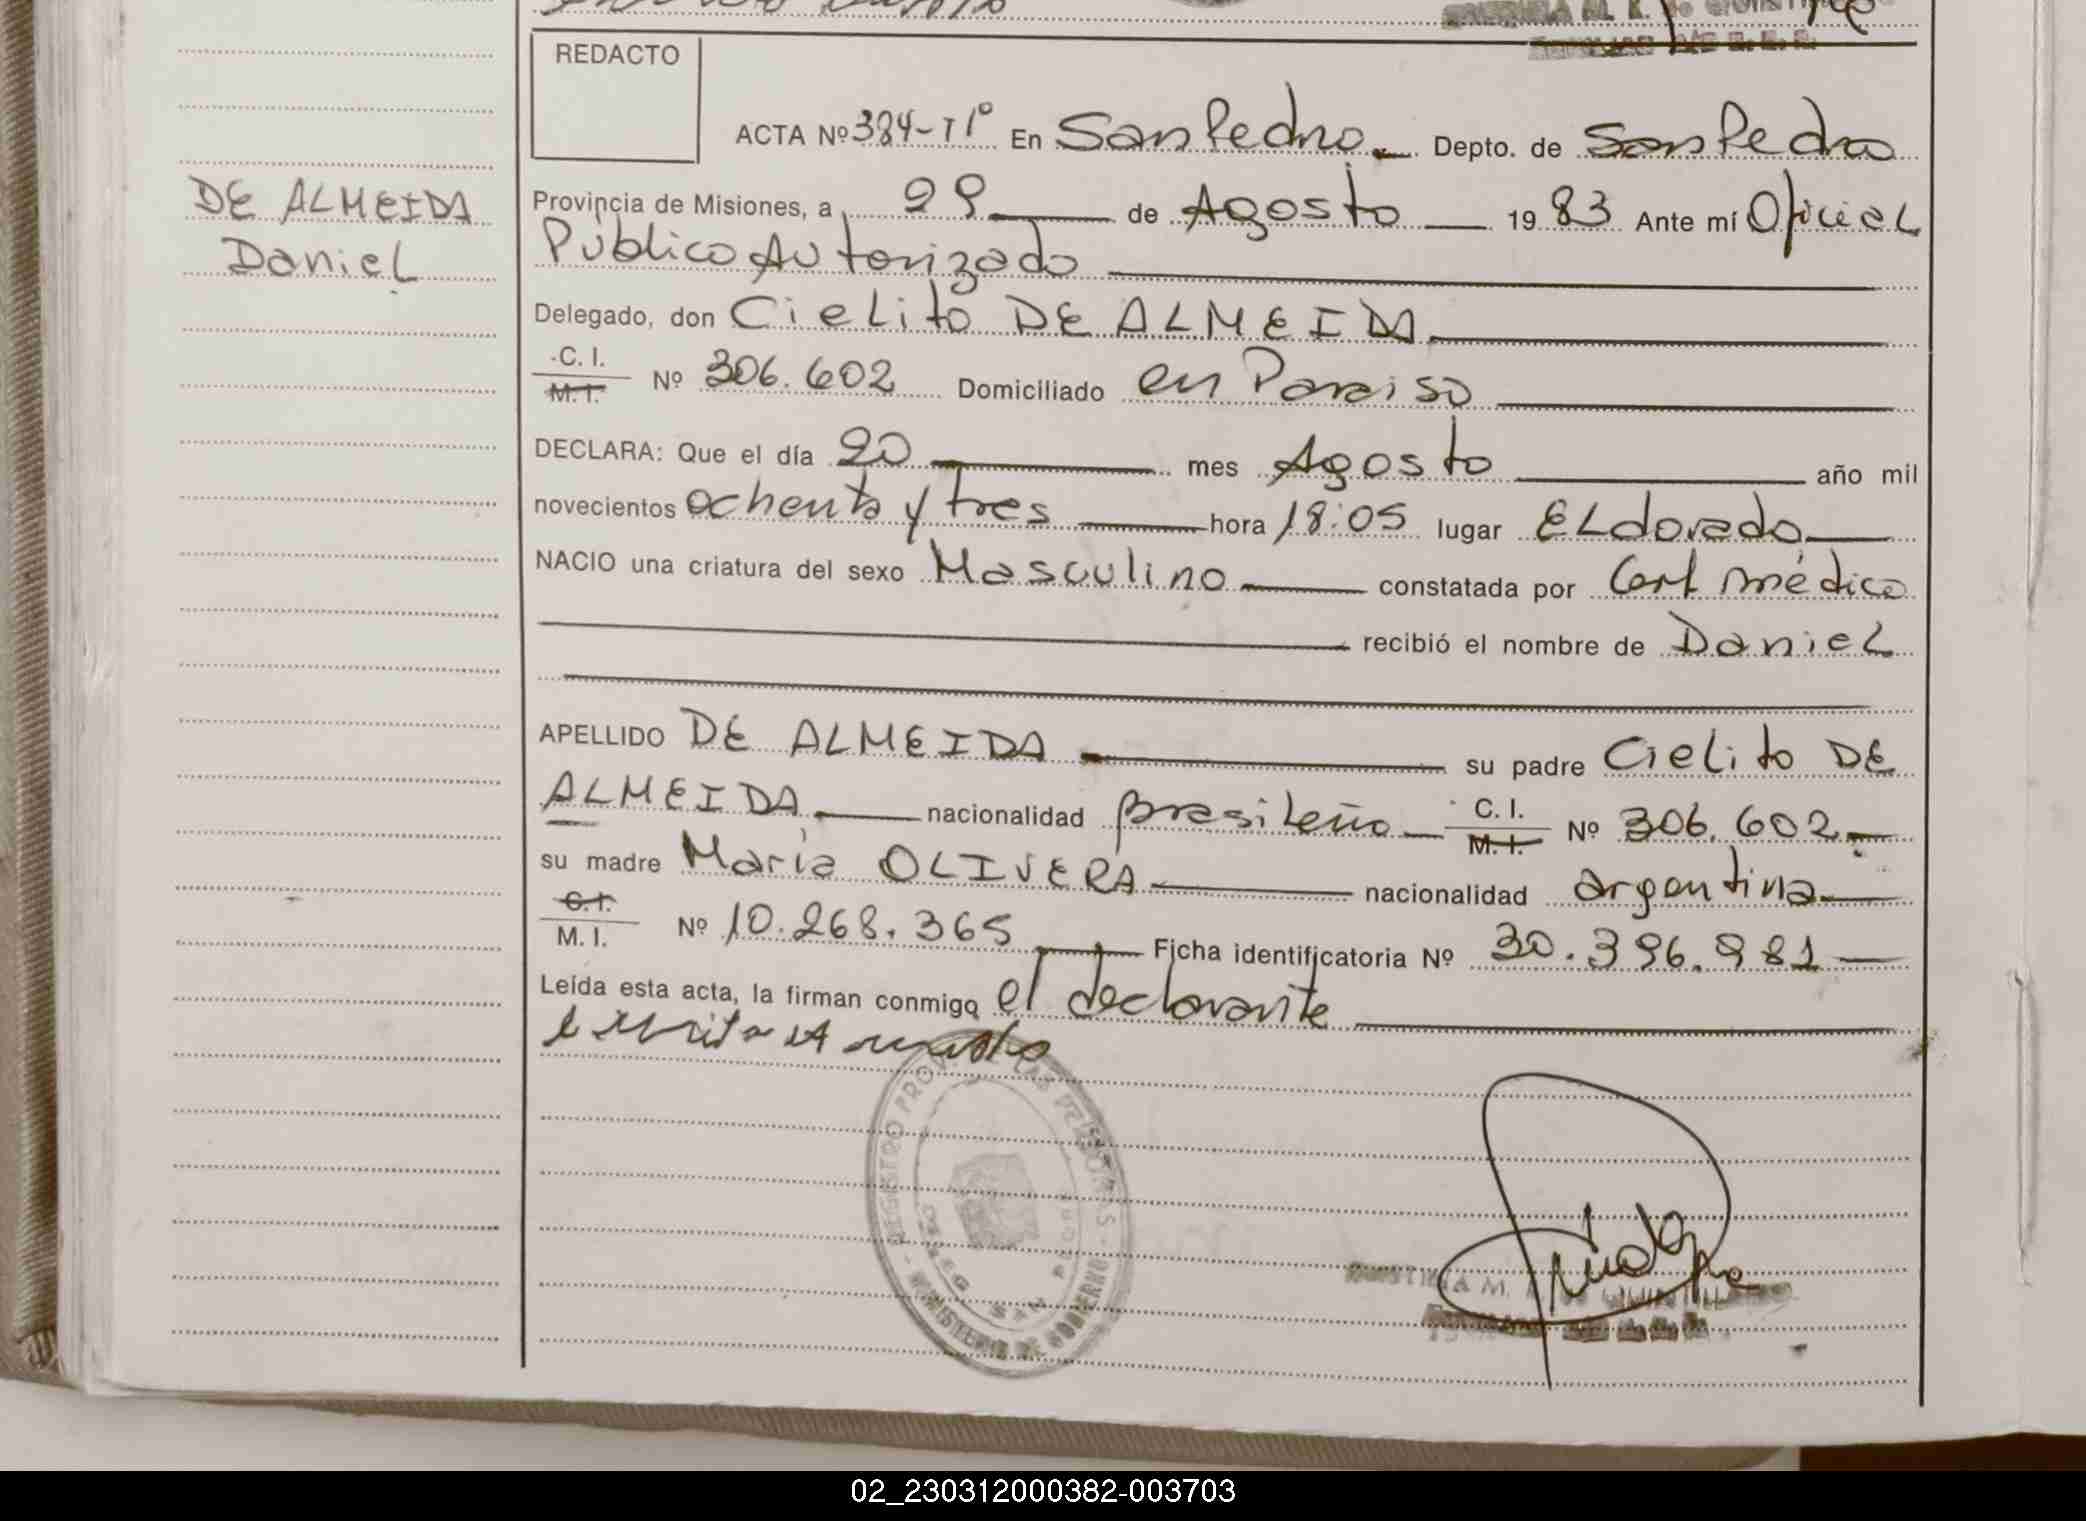 REDACTO
ACTA Nº 384-Tº1º En San Pedro Depto. de San Pedro
DE ALMEIDA
Daniel
Provincia de Misiones, a 29 de Agosto 19 83 Ante mí Oficial
Público Autorizado
Delegado, don Cielito DE ALMEIDA
C. I.
M. I. Nº 306.602 Domiciliado en Paraiso
DECLARA: Que el día 20 mes Agosto año mil
novecientos ochenta y tres hora 18:05 lugar ELdorado
NACIO una criatura del sexo Masculino constatada por Cert médico
recibió el nombre de Daniel
APELLIDO DE ALMEIDA su padre Cielito DE
ALMEIDA nacionalidad Brasileño C. I. M. I. Nº 306.602
su madre María OLIVERA nacionalidad argentina
C. I.
M. I. Nº 10.268.365 Ficha identificatoria Nº 30.396.981
Leída esta acta, la firman conmigo el declarante
REGISTRO PROV. DE LAS PERSONAS
MINISTERIO DE GOBIERNO
SAN PEDRO
02_230312000382-003703